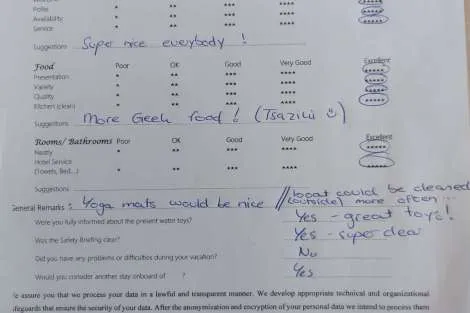 Polite * ** *** **** *****
Availability * ** *** **** *****
Service * ** *** **** *****
Suggestions Super nice everybody !
Food Poor OK Good Very Good Excellent
Presentation * ** *** **** *****
Variety * ** *** **** *****
Quality * ** *** **** *****
Kitchen (clean) * ** *** **** *****
Suggestions More Geek food ! (Tsaziki ☺)
Rooms/ Bathrooms Poor OK Good Very Good Excellent
Neatly * ** *** **** *****
Hotel Service
(Towels, Bed...) * ** *** **** *****
Suggestions
General Remarks : Yoga mats would be nice // boat could be cleaned
(outside) more often ...
Were you fully informed about the present water toys? Yes - great toys!
Was the Safety Briefing clear? Yes - super clear
Did you have any problems or difficulties during your vacation? No
Would you consider another stay onboard of ? Yes
e assure you that we process your data in a lawful and transparent manner. We develop appropriate technical and organizational
feguards that ensure the security of your data. After the anonymization and encryption of your personal data we intend to process them